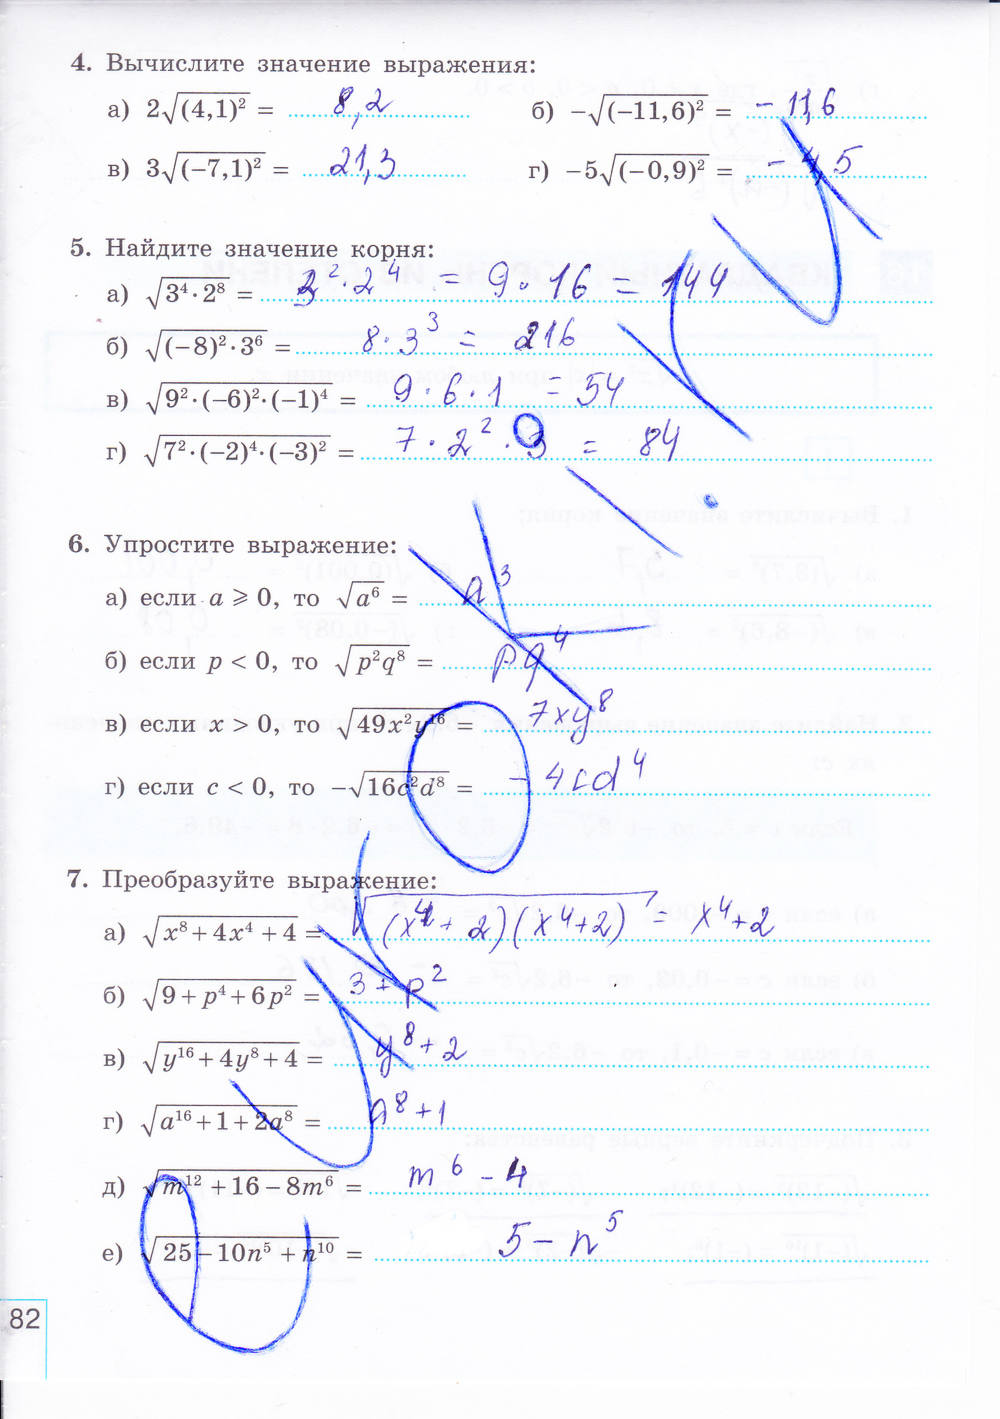 4. Вычислите значение выражения:
а) 2√(4,1)² = 8,2 б) −√(−11,6)² = −11,6
в) 3√(−7,1)² = 21,3 г) −5√(−0,9)² = −4,5
5. Найдите значение корня:
а) √3⁴·2⁸ = 3²·2⁴ = 9·16 = 144
б) √(−8)²·3⁶ = 8·3³ = 216
в) √9²·(−6)²·(−1)⁴ = 9·6·1 = 54
г) √7²·(−2)⁴·(−3)² = 7·2²·3 = 84
6. Упростите выражение:
а) если a ⩾ 0, то √a⁶ = a³
б) если p < 0, то √p²q⁸ = pq⁴
в) если x > 0, то √49x²y¹⁶ = 7xy⁸
г) если c < 0, то −√16c²d⁸ = −4cd⁴
7. Преобразуйте выражение:
а) √x⁸+4x⁴+4 = √(x⁴+2)(x⁴+2) = x⁴+2
б) √9+p⁴+6p² = 3+p²
в) √y¹⁶+4y⁸+4 = y⁸+2
г) √a¹⁶+1+2a⁸ = a⁸+1
д) √m¹²+16−8m⁶ = m⁶−4
е) √25−10n⁵+n¹⁰ = 5−n⁵
82